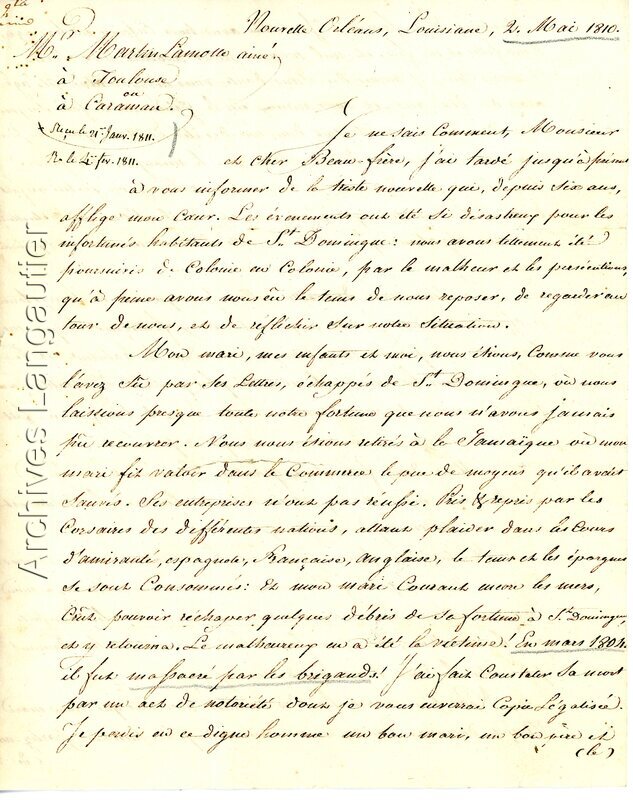 Nouvelle Orléans, Louisiane, 2. Mai 1810.
Mr. Martin Lamotte ainé,
à Toulouse
ou
à Caraman.
Reçu le 21 Janv. 1811.
R. le 4 fév. 1811.
Je ne sais Comment, Monsieur
et cher Beau-frère, j'ai tardé jusqu'à présent
à vous informer de la triste nouvelle qui, depuis six ans,
afflige mon cœur. Les évenements ont été si désastreux pour les
infortunés habitants de St. Domingue: nous avons tellement été
poursuivis de Colonie en Colonie, par le malheur et les persécutions,
qu'à peine avons nous eû le tems de nous reposer, de regarder au
tour de nous, et de reflechir sur notre situation.
Mon mari, mes enfants et moi, nous étions, Comme vous
l'avez sû par ses Lettres, échappés de St. Domingue, où nous
laissions presque toute notre fortune que nous n'avons jamais
pû recouvrer. Nous nous étions retirés à la Jamaïque où mon
mari fit valoir dans le Commerce le peu de moyens qu'il avait
sauvés. Ses entreprises n'ont pas réussi. Pris & repris par les
Corsaires des différentes nations, allant plaider dans les Cours
d'amirauté, espagnole, Française, anglaise, le tems et les épargnes
se sont Consommés: Et mon mari Courant encore les mers,
Crût pouvoir réchaper quelques débris de sa fortune à St. Domingue,
et y retourna. Le malheureux en a été la victime! En mars 1804.
il fut massacré par les brigands! J'ai fait Constater sa mort
par un acte de notoriété dont je vous enverrai Copie Légalisée.
Je perdis en ce digne homme un bon mari, un bon père et
(le)
Archives Langautier